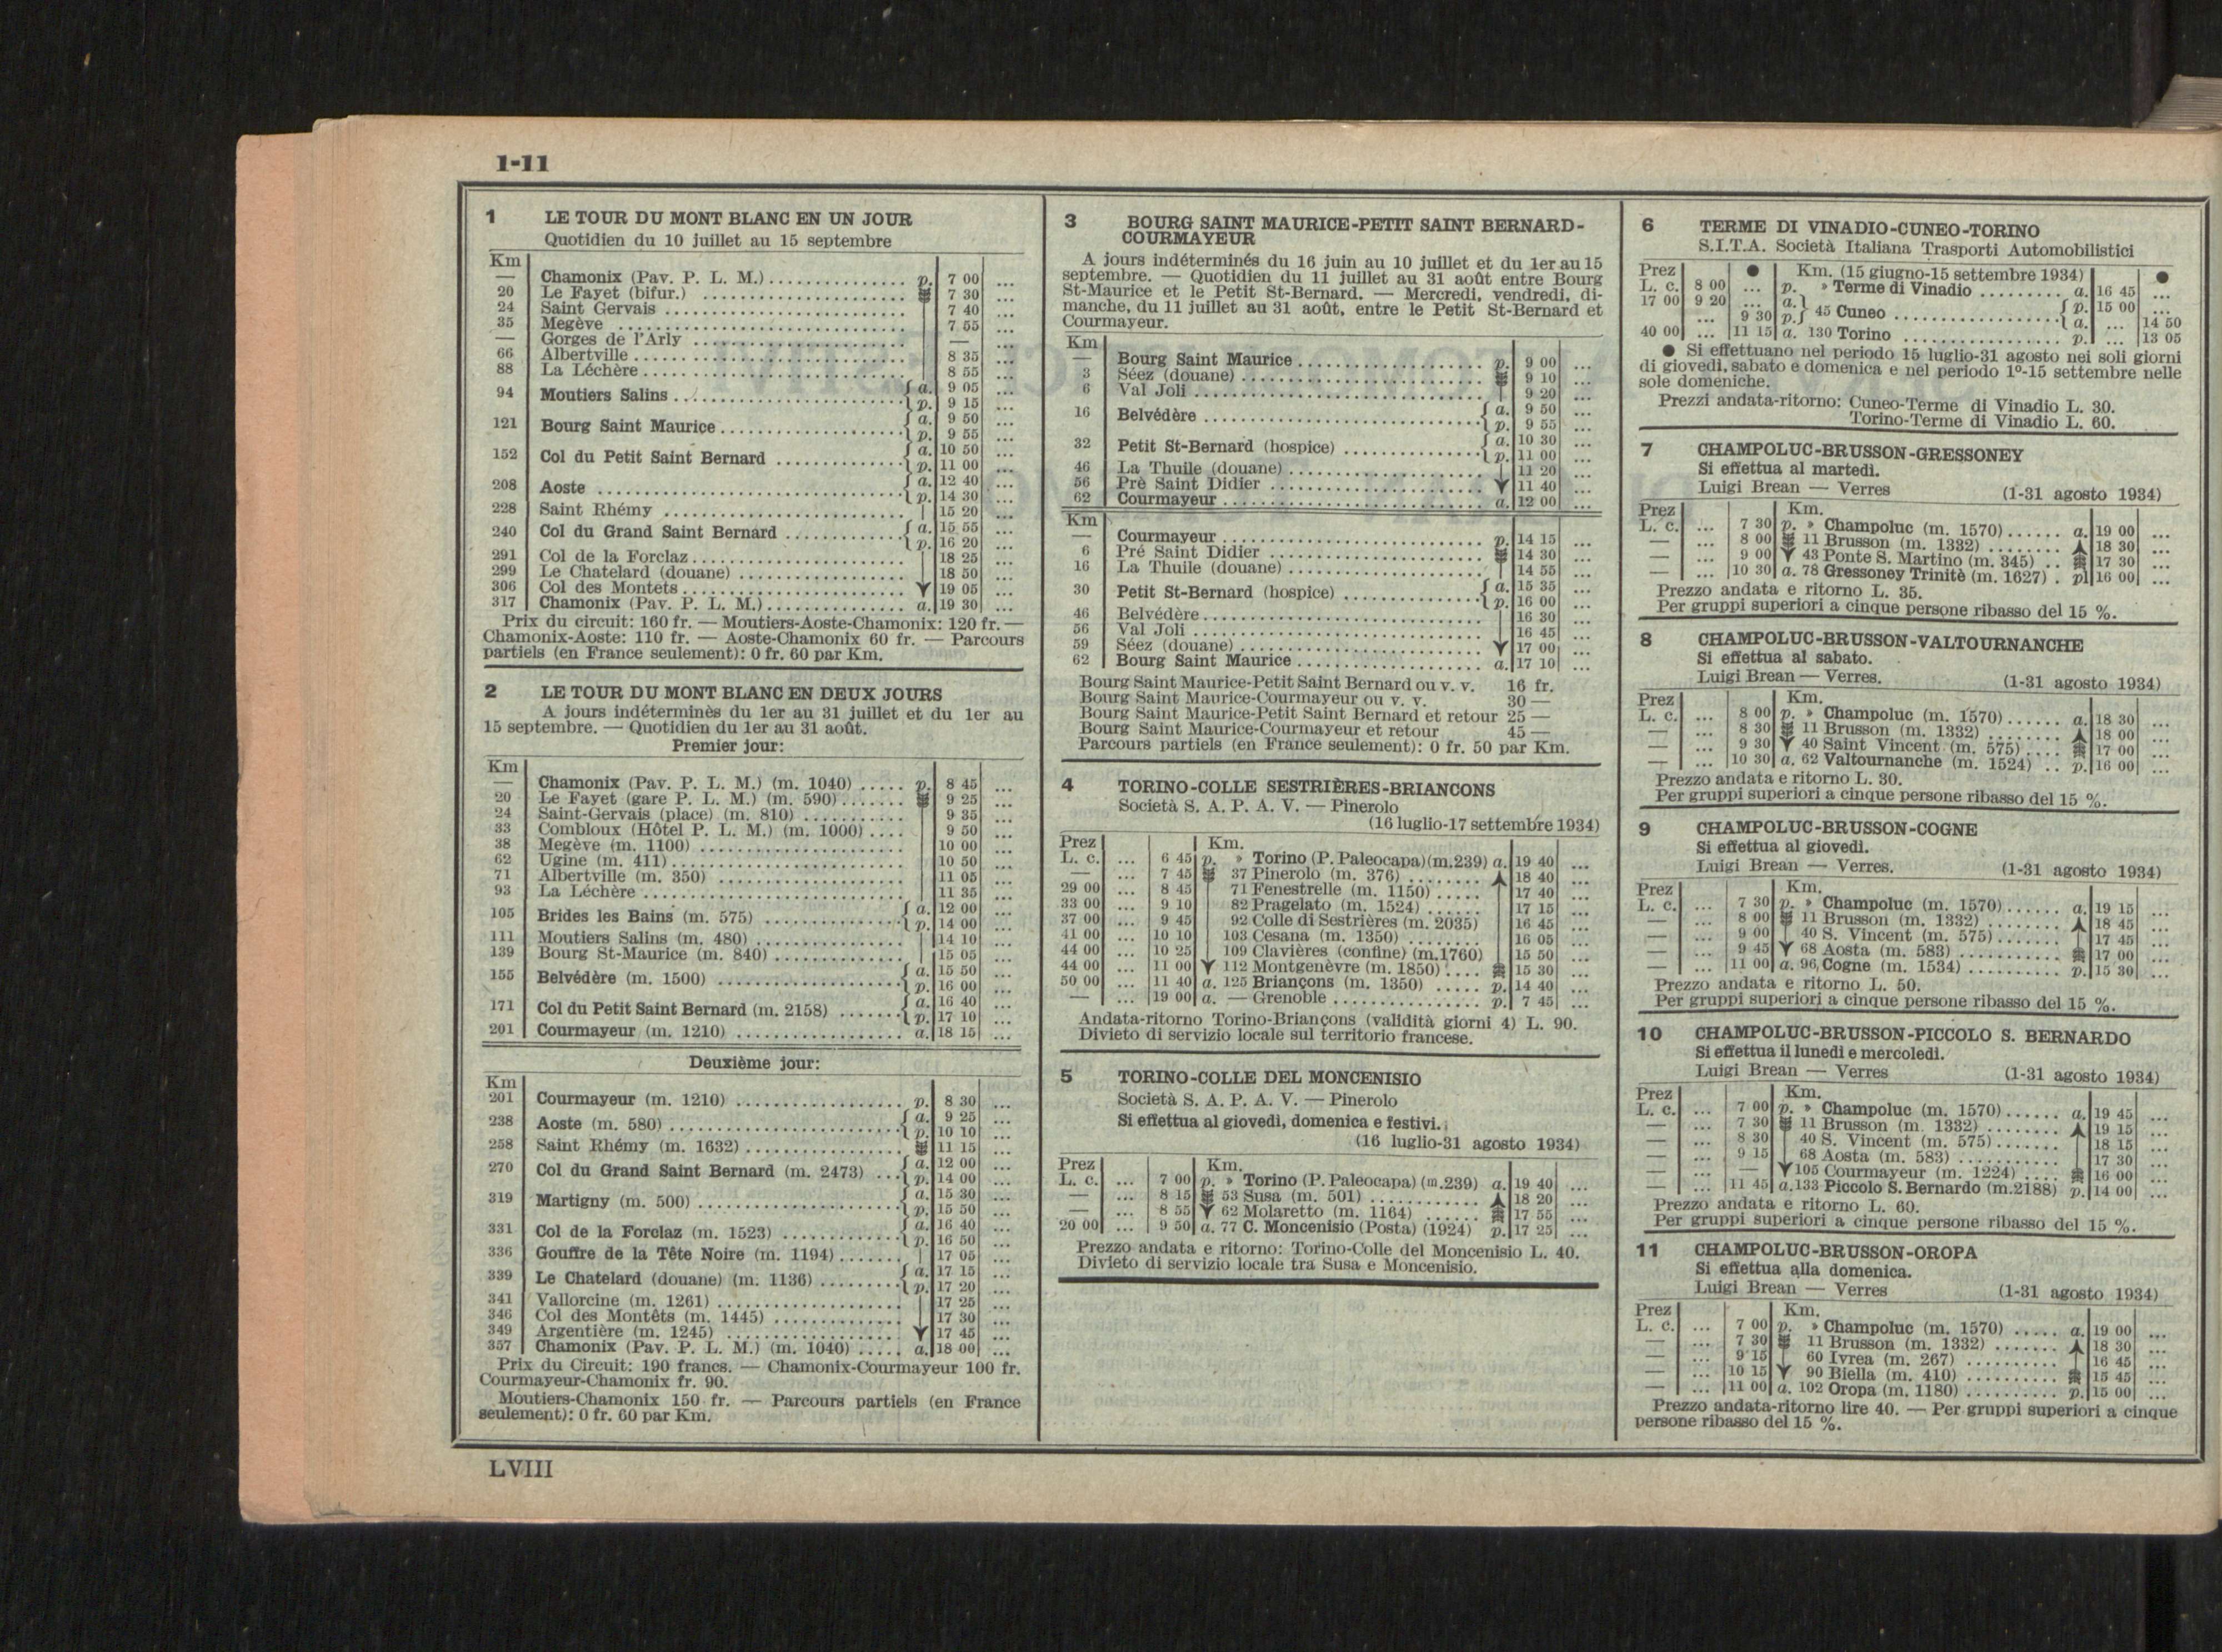 1-11
1 LE TOUR DU MONT BLANC EN UN JOUR
Quotidien du 10 juillet au 15 septembre
Km
— Chamonix (Pav. P. L. M.) p. 7 00 ...
20 Le Fayet (bifur.) 7 30 ...
24 Saint Gervais 7 40 ...
35 Megève 7 55 ...
— Gorges de l'Arly — ...
66 Albertville 8 35 ...
88 La Léchère 8 55 ...
94 Moutiers Salins a. 9 05 ...
p. 9 15 ...
121 Bourg Saint Maurice a. 9 50 ...
p. 9 55 ...
152 Col du Petit Saint Bernard a. 10 50 ...
p. 11 00 ...
208 Aoste a. 12 40 ...
p. 14 30 ...
228 Saint Rhémy 15 20 ...
240 Col du Grand Saint Bernard a. 15 55 ...
p. 16 20 ...
291 Col de la Forclaz 18 25 ...
299 Le Chatelard (douane) 18 50 ...
306 Col des Montets 19 05 ...
317 Chamonix (Pav. P. L. M.) a. 19 30 ...
Prix du circuit: 160 fr. — Moutiers-Aoste-Chamonix: 120 fr. —
Chamonix-Aoste: 110 fr. — Aoste-Chamonix 60 fr. — Parcours
partiels (en France seulement): 0 fr. 60 par Km.
2 LE TOUR DU MONT BLANC EN DEUX JOURS
A jours indéterminès du 1er au 31 juillet et du 1er au
15 septembre. — Quotidien du 1er au 31 août.
Premier jour:
Km
— Chamonix (Pav. P. L. M.) (m. 1040) p. 8 45 ...
20 Le Fayet (gare P. L. M.) (m. 590) 9 25 ...
24 Saint-Gervais (place) (m. 810) 9 35 ...
33 Combloux (Hôtel P. L. M.) (m. 1000) 9 50 ...
38 Megève (m. 1100) 10 00 ...
62 Ugine (m. 411) 10 50 ...
71 Albertville (m. 350) 11 05 ...
93 La Léchère 11 35 ...
105 Brides les Bains (m. 575) a. 12 00 ...
p. 14 00 ...
111 Moutiers Salins (m. 480) 14 10 ...
139 Bourg St-Maurice (m. 840) 15 05 ...
155 Belvédère (m. 1500) a. 15 50 ...
p. 16 00 ...
171 Col du Petit Saint Bernard (m. 2158) a. 16 40 ...
p. 17 10 ...
201 Courmayeur (m. 1210) a. 18 15 ...
Deuxième jour:
Km
201 Courmayeur (m. 1210) p. 8 30 ...
238 Aoste (m. 580) a. 9 25 ...
p. 10 10 ...
258 Saint Rhémy (m. 1632) 11 15 ...
270 Col du Grand Saint Bernard (m. 2473) a. 12 00 ...
p. 14 00 ...
319 Martigny (m. 500) a. 15 30 ...
p. 15 50 ...
331 Col de la Forclaz (m. 1523) a. 16 40 ...
p. 16 50 ...
336 Gouffre de la Tête Noire (m. 1194) 17 05 ...
339 Le Chatelard (douane) (m. 1136) a. 17 15 ...
p. 17 20 ...
341 Vallorcine (m. 1261) 17 25 ...
346 Col des Montêts (m. 1445) 17 30 ...
349 Argentière (m. 1245) 17 45 ...
357 Chamonix (Pav. P. L. M.) (m. 1040) a. 18 00 ...
Prix du Circuit: 190 francs. — Chamonix-Courmayeur 100 fr.
Courmayeur-Chamonix fr. 90.
Moutiers-Chamonix 150 fr. — Parcours partiels (en France
seulement): 0 fr. 60 par Km.
LVIII
3 BOURG SAINT MAURICE-PETIT SAINT BERNARD-
COURMAYEUR
A jours indéterminés du 16 juin au 10 juillet et du 1er au 15
septembre. — Quotidien du 11 juillet au 31 août entre Bourg
St-Maurice et le Petit St-Bernard. — Mercredi, vendredi, di-
manche, du 11 juillet au 31 août, entre le Petit St-Bernard et
Courmayeur.
Km
— Bourg Saint Maurice p. 9 00 ...
3 Séez (douane) 9 10 ...
6 Val Joli 9 20 ...
16 Belvédère a. 9 50 ...
p. 9 55 ...
32 Petit St-Bernard (hospice) a. 10 30 ...
p. 11 00 ...
46 La Thuile (douane) 11 20 ...
56 Prè Saint Didier 11 40 ...
62 Courmayeur a. 12 00 ...
Km
— Courmayeur p. 14 15 ...
6 Pré Saint Didier 14 30 ...
16 La Thuile (douane) 14 55 ...
30 Petit St-Bernard (hospice) a. 15 35 ...
p. 16 00 ...
46 Belvédère 16 30 ...
56 Val Joli 16 45 ...
59 Séez (douane) 17 00 ...
62 Bourg Saint Maurice a. 17 10 ...
Bourg Saint Maurice-Petit Saint Bernard ou v. v. 16 fr.
Bourg Saint Maurice-Courmayeur ou v. v. 30 —
Bourg Saint Maurice-Petit Saint Bernard et retour 25 —
Bourg Saint Maurice-Courmayeur et retour 45 —
Parcours partiels (en France seulement): 0 fr. 50 par Km.
4 TORINO-COLLE SESTRIÈRES-BRIANCONS
Società S. A. P. A. V. — Pinerolo
(16 luglio-17 settembre 1934)
Prez Km.
L. c. ... 6 45 p. » Torino (P. Paleocapa) (m.239) a. 19 40 ...
— ... 7 45 37 Pinerolo (m. 376) 18 40 ...
29 00 ... 8 45 71 Fenestrelle (m. 1150) 17 40 ...
33 00 ... 9 10 82 Pragelato (m. 1524) 17 15 ...
37 00 ... 9 45 92 Colle di Sestrières (m. 2035) 16 45 ...
41 00 ... 10 10 103 Cesana (m. 1350) 16 05 ...
44 00 ... 10 25 109 Clavières (confine) (m.1760) 15 50 ...
44 00 ... 11 00 112 Montgenèvre (m. 1850) 15 30 ...
50 00 ... 11 40 a. 125 Briançons (m. 1350) p. 14 40 ...
— ... 19 00 a. — Grenoble p. 7 45 ...
Andata-ritorno Torino-Briançons (validità giorni 4) L. 90.
Divieto di servizio locale sul territorio francese.
5 TORINO-COLLE DEL MONCENISIO
Società S. A. P. A. V. — Pinerolo
Si effettua al giovedì, domenica e festivi.
(16 luglio-31 agosto 1934)
Prez Km.
L. c. ... 7 00 p. » Torino (P. Paleocapa) (m.239) a. 19 40 ...
— ... 8 15 53 Susa (m. 501) 18 20 ...
— ... 8 55 62 Molaretto (m. 1164) 17 55 ...
20 00 ... 9 50 a. 77 C. Moncenisio (Posta) (1924) p. 17 25 ...
Prezzo andata e ritorno: Torino-Colle del Moncenisio L. 40.
Divieto di servizio locale tra Susa e Moncenisio.
6 TERME DI VINADIO-CUNEO-TORINO
S.I.T.A. Società Italiana Trasporti Automobilistici
Prez ● Km. (15 giugno-15 settembre 1934) ●
L. c. 8 00 ... p. » Terme di Vinadio a. 16 45 ...
17 00 9 20 ... a. 45 Cuneo p. 15 00 ...
... 9 30 p. a. ... 14 50
40 00 ... 11 15 a. 130 Torino p. ... 13 05
● Si effettuano nel periodo 15 luglio-31 agosto nei soli giorni
di giovedì, sabato e domenica e nel periodo 1º-15 settembre nelle
sole domeniche.
Prezzi andata-ritorno: Cuneo-Terme di Vinadio L. 30.
Torino-Terme di Vinadio L. 60.
7 CHAMPOLUC-BRUSSON-GRESSONEY
Si effettua al martedì.
Luigi Brean — Verres (1-31 agosto 1934)
Prez Km.
L. c. ... 7 30 p. » Champoluc (m. 1570) a. 19 00 ...
— ... 8 00 11 Brusson (m. 1332) 18 30 ...
— ... 9 00 43 Ponte S. Martino (m. 345) 17 30 ...
— ... 10 30 a. 78 Gressoney Trinitè (m. 1627) p. 16 00 ...
Prezzo andata e ritorno L. 35.
Per gruppi superiori a cinque persone ribasso del 15 %.
8 CHAMPOLUC-BRUSSON-VALTOURNANCHE
Si effettua al sabato.
Luigi Brean — Verres. (1-31 agosto 1934)
Prez Km.
L. c. ... 8 00 p. » Champoluc (m. 1570) a. 18 30 ...
— ... 8 30 11 Brusson (m. 1332) 18 00 ...
— ... 9 30 40 Saint Vincent (m. 575) 17 00 ...
— ... 10 30 a. 62 Valtournanche (m. 1524) p. 16 00 ...
Prezzo andata e ritorno L. 30.
Per gruppi superiori a cinque persone ribasso del 15 %.
9 CHAMPOLUC-BRUSSON-COGNE
Si effettua al giovedì.
Luigi Brean — Verres. (1-31 agosto 1934)
Prez Km.
L. c. ... 7 30 p. » Champoluc (m. 1570) a. 19 15 ...
— ... 8 00 11 Brusson (m. 1332) 18 45 ...
— ... 9 00 40 S. Vincent (m. 575) 17 45 ...
— ... 9 45 68 Aosta (m. 583) 17 00 ...
— ... 11 00 a. 96 Cogne (m. 1534) p. 15 30 ...
Prezzo andata e ritorno L. 50.
Per gruppi superiori a cinque persone ribasso del 15 %.
10 CHAMPOLUC-BRUSSON-PICCOLO S. BERNARDO
Si effettua il lunedì e mercoledì.
Luigi Brean — Verres (1-31 agosto 1934)
Prez Km.
L. c. ... 7 00 p. » Champoluc (m. 1570) a. 19 45 ...
— ... 7 30 11 Brusson (m. 1332) 19 15 ...
— ... 8 30 40 S. Vincent (m. 575) 18 15 ...
— ... 9 15 68 Aosta (m. 583) 17 30 ...
— ... — 105 Courmayeur (m. 1224) 16 00 ...
— ... 11 45 a. 133 Piccolo S. Bernardo (m.2188) p. 14 00 ...
Prezzo andata e ritorno L. 60.
Per gruppi superiori a cinque persone ribasso del 15 %.
11 CHAMPOLUC-BRUSSON-OROPA
Si effettua alla domenica.
Luigi Brean — Verres (1-31 agosto 1934)
Prez Km.
L. c. ... 7 00 p. » Champoluc (m. 1570) a. 19 00 ...
— ... 7 30 11 Brusson (m. 1332) 18 30 ...
— ... 9 15 60 Ivrea (m. 267) 16 45 ...
— ... 10 15 90 Biella (m. 410) 15 45 ...
— ... 11 00 a. 102 Oropa (m. 1180) p. 15 00 ...
Prezzo andata-ritorno lire 40. — Per gruppi superiori a cinque
persone ribasso del 15 %.